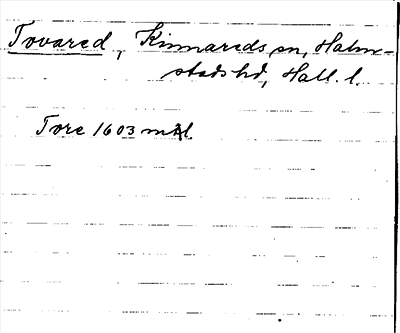 Tovared, Kinnareds sn, Halm-
stads hd, Hall. l.
Tore 1603 mAl